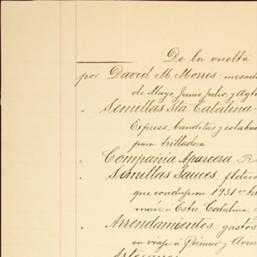 De la vuelta
por David M. Morris - mesada
de Mayo Junio Julio y Agto
Semillas Sta. Catalina -
Express, banditas y
para trilladora
Compañia Aparcera
Semillas Sauces, fletero
que condujeron 1931
maíz á Estn Catalina
Arrendamientos, gastos
en viaje á